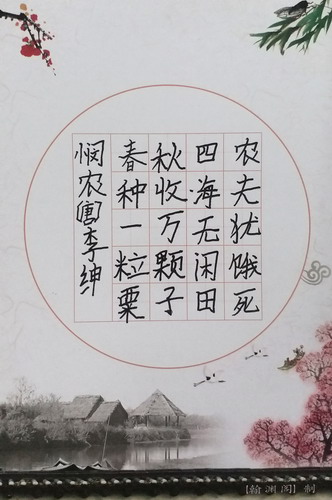 悯农唐李绅
春种一粒粟
秋收万颗子
四海无闲田
农夫犹饿死
【翰渊阁】制